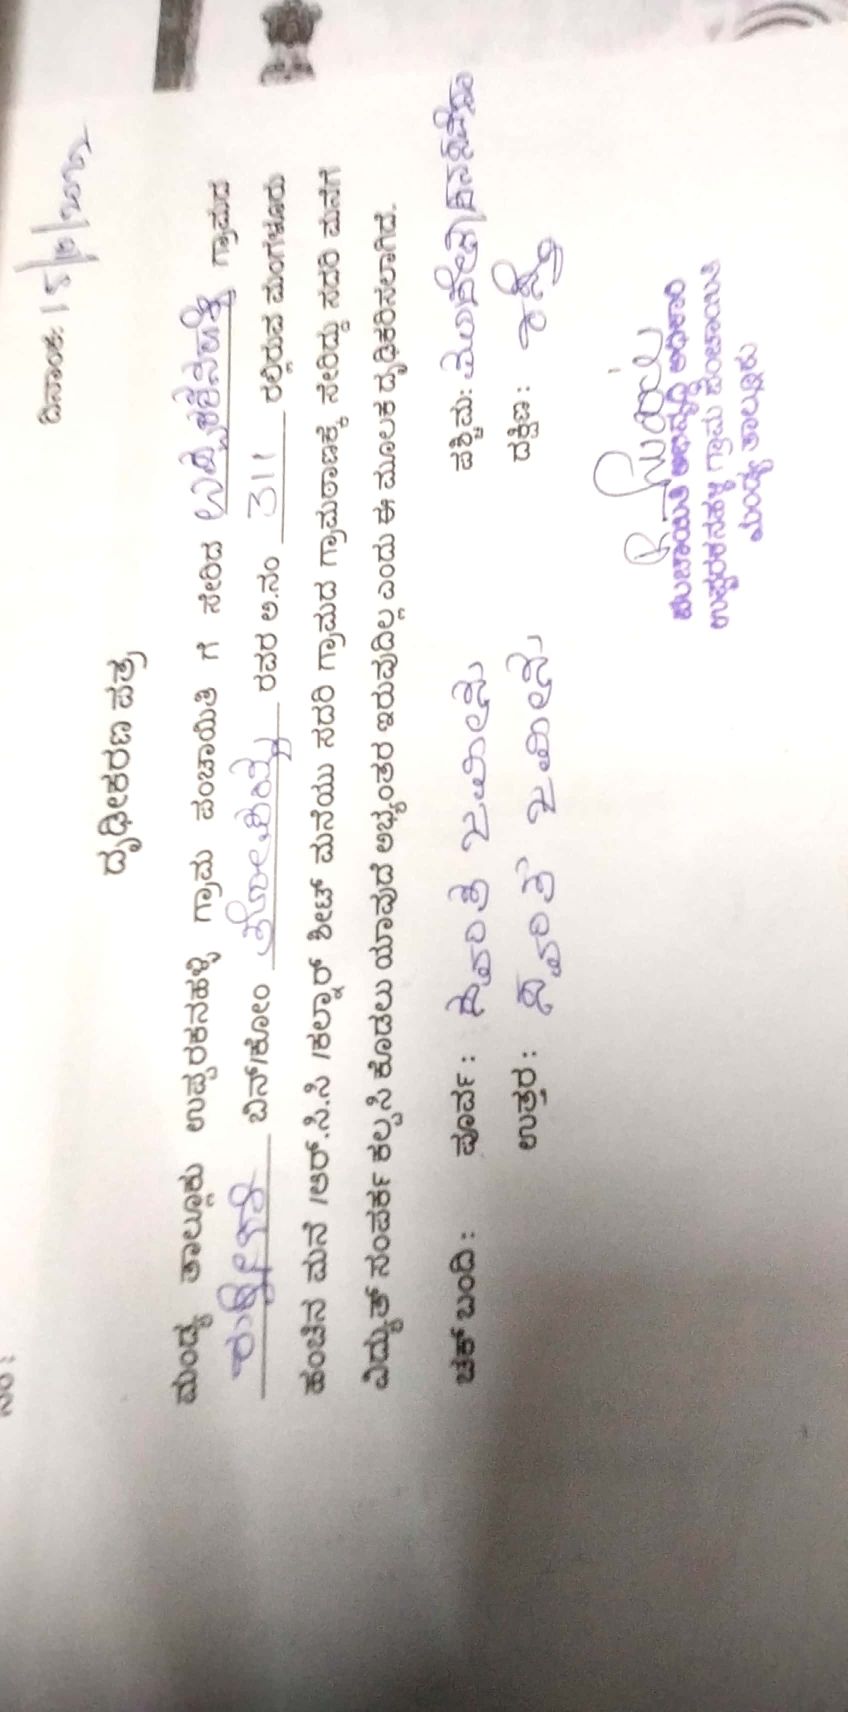 ನಂ :
ದಿನಾಂಕ: 15/
ದೃಢೀಕರಣ ಪತ್ರ
ಮಂಡ್ಯ ತಾಲ್ಲೂಕು ಉಪ್ಪರಕನಹಳ್ಳಿ ಗ್ರಾಮ ಪಂಚಾಯಿತಿ ಗೆ ಸೇರಿದ ಉಪ್ಪರಕನಹಳ್ಳಿ ಗ್ರಾಮದ
ಬಿನ್/ಕೋಂ ರವರ ಅ.ನಂ 311 ರಲ್ಲಿರುವ ಮಂಗಳೂರು
ಹಂಚಿನ ಮನೆ /ಆರ್.ಸಿ.ಸಿ /ಕಲ್ನಾರ್ ಶೀಟ್ ಮನೆಯು ಸದರಿ ಗ್ರಾಮದ ಗ್ರಾಮಠಾಣಕ್ಕೆ ಸೇರಿದ್ದು ಸದರಿ ಮನೆಗೆ
ವಿದ್ಯುತ್ ಸಂಪರ್ಕ ಕಲ್ಪಸಿ ಕೊಡಲು ಯಾವುದೆ ಅಭ್ಯಂತರ ಇರುವುದಿಲ್ಲ ಎಂದು ಈ ಮೂಲಕ ದೃಢಿಕರಿಸಲಾಗಿದೆ.
ಚಕ್ ಬಂದಿ : ಪೂರ್ವ : ಸ್ವಂತ ಜಮೀನು ಪಶ್ಚಿಮ:
ಉತ್ತರ : ಸ್ವಂತ ಜಮೀನು ದಕ್ಷಿಣ : ರಸ್ತೆ
ಪಂಚಾಯಿತಿ ಅಭಿವೃದ್ಧಿ ಅಧಿಕಾರಿ
ಉಪ್ಪರಕನಹಳ್ಳಿ ಗ್ರಾಮ ಪಂಚಾಯಿತಿ
ಮಂಡ್ಯ ತಾಲ್ಲೂಕು